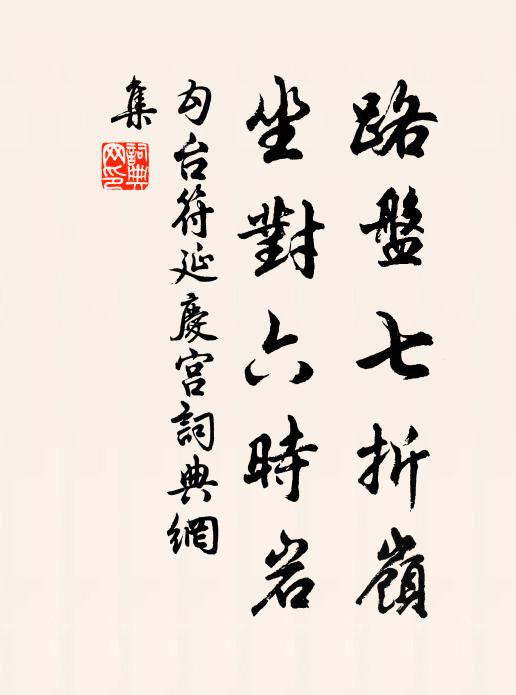 路盤七折嶺
坐對六時岩
勾台符延慶宫詞典網
集
詞典
网印